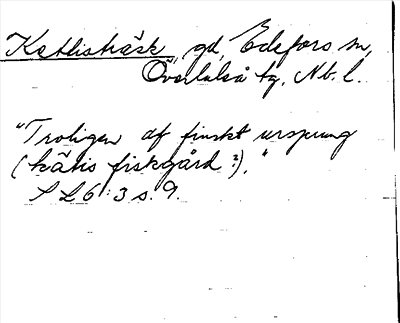 Katlisträsk, gd, Edefors sn,
Överluleå tg, Nb. l.
"Troligen af finskt ursprung
(kätis fiskgård?)."
SL 6:3 s. 9.